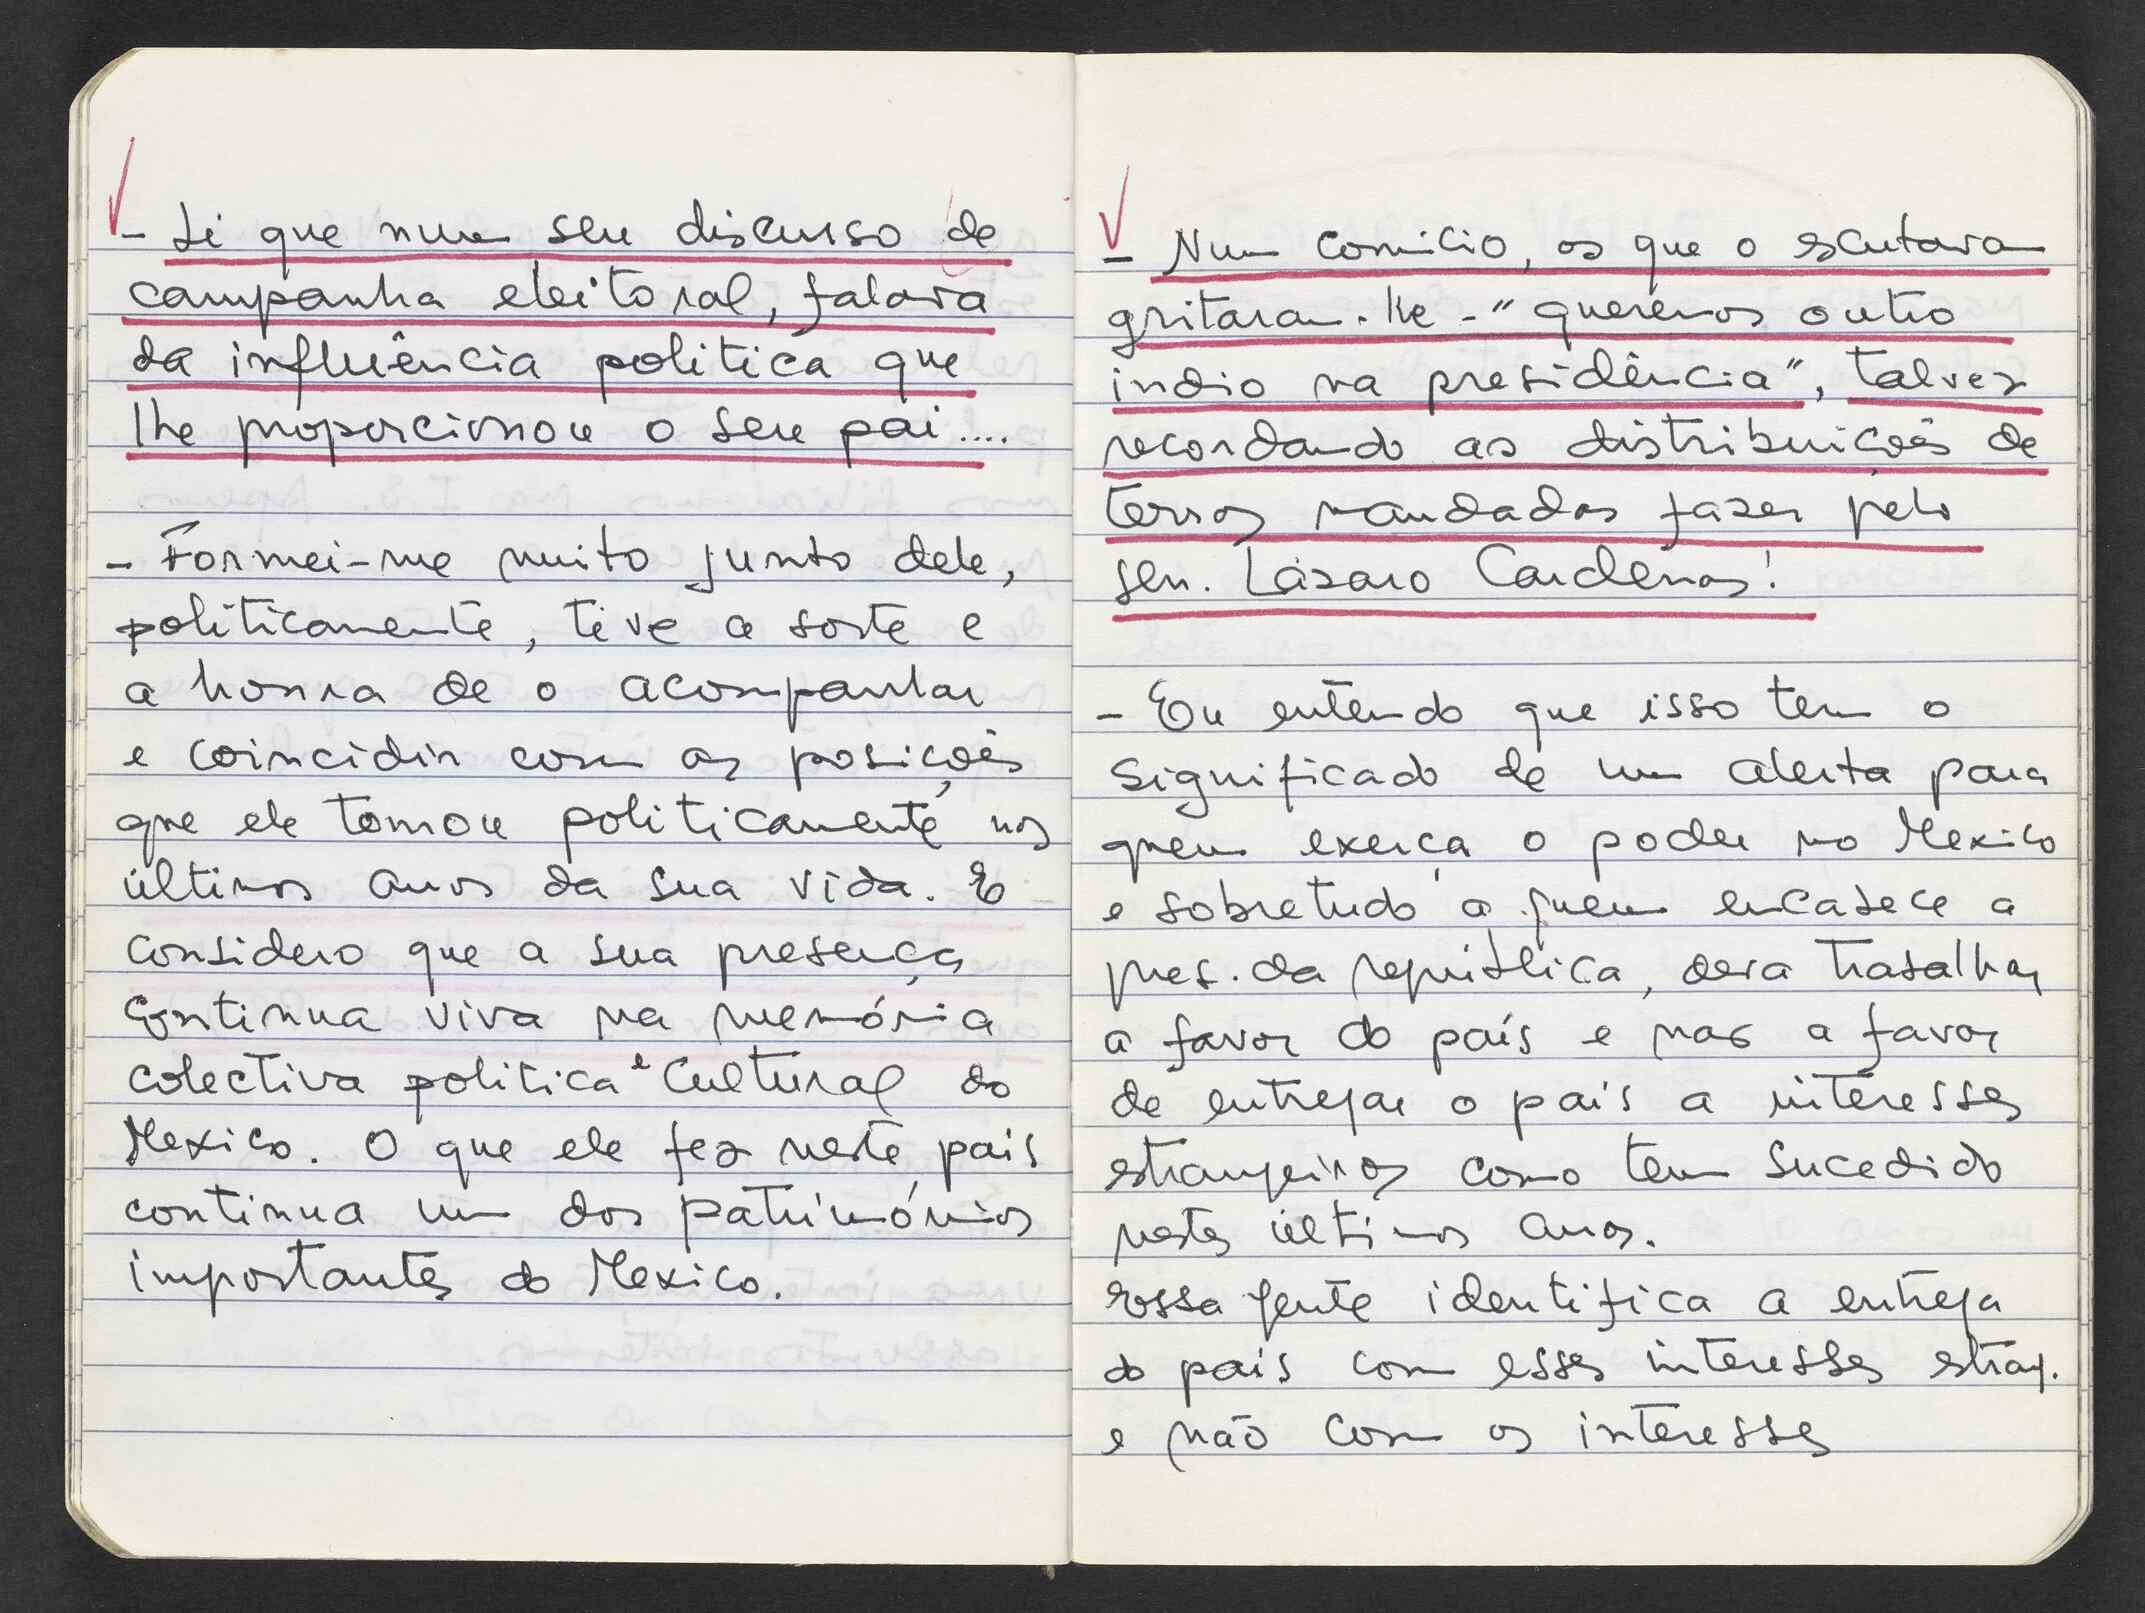 - Li que num seu discurso de
campanha eleitoral, falava
da influência politica que
lhe proporcionou o seu pai....
- Formei-me muito junto dele,
politicamente, tive a sorte e
a honra de o acompanhar
e coincidir com as posições
que ele tomou politicamente nos
últimos anos da sua vida. E
considero que a sua presença
continua viva na memória
colectiva politica e cultural do
Mexico. O que ele fez neste país
continua um dos patrimónios
importantes do Mexico.
- Num comicio, os que o escutavam
gritaram-lhe - "queremos outro
indio na presidência", talvez
recordando as distribuições de
terras mandadas fazer pelo
gen. Lázaro Cardenas!
- Eu entendo que isso tem o
significado de um alerta para
quem exerça o poder no Mexico
e sobretudo a quem encabece a
pres. da república, deva trabalhar
a favor do país e nao a favor
de entregar o país a interesses
estrangeiros como tem sucedido
nestes últimos anos.
Essa gente identifica a entrega
do país com esses interesses estrang.
e não com os interesses